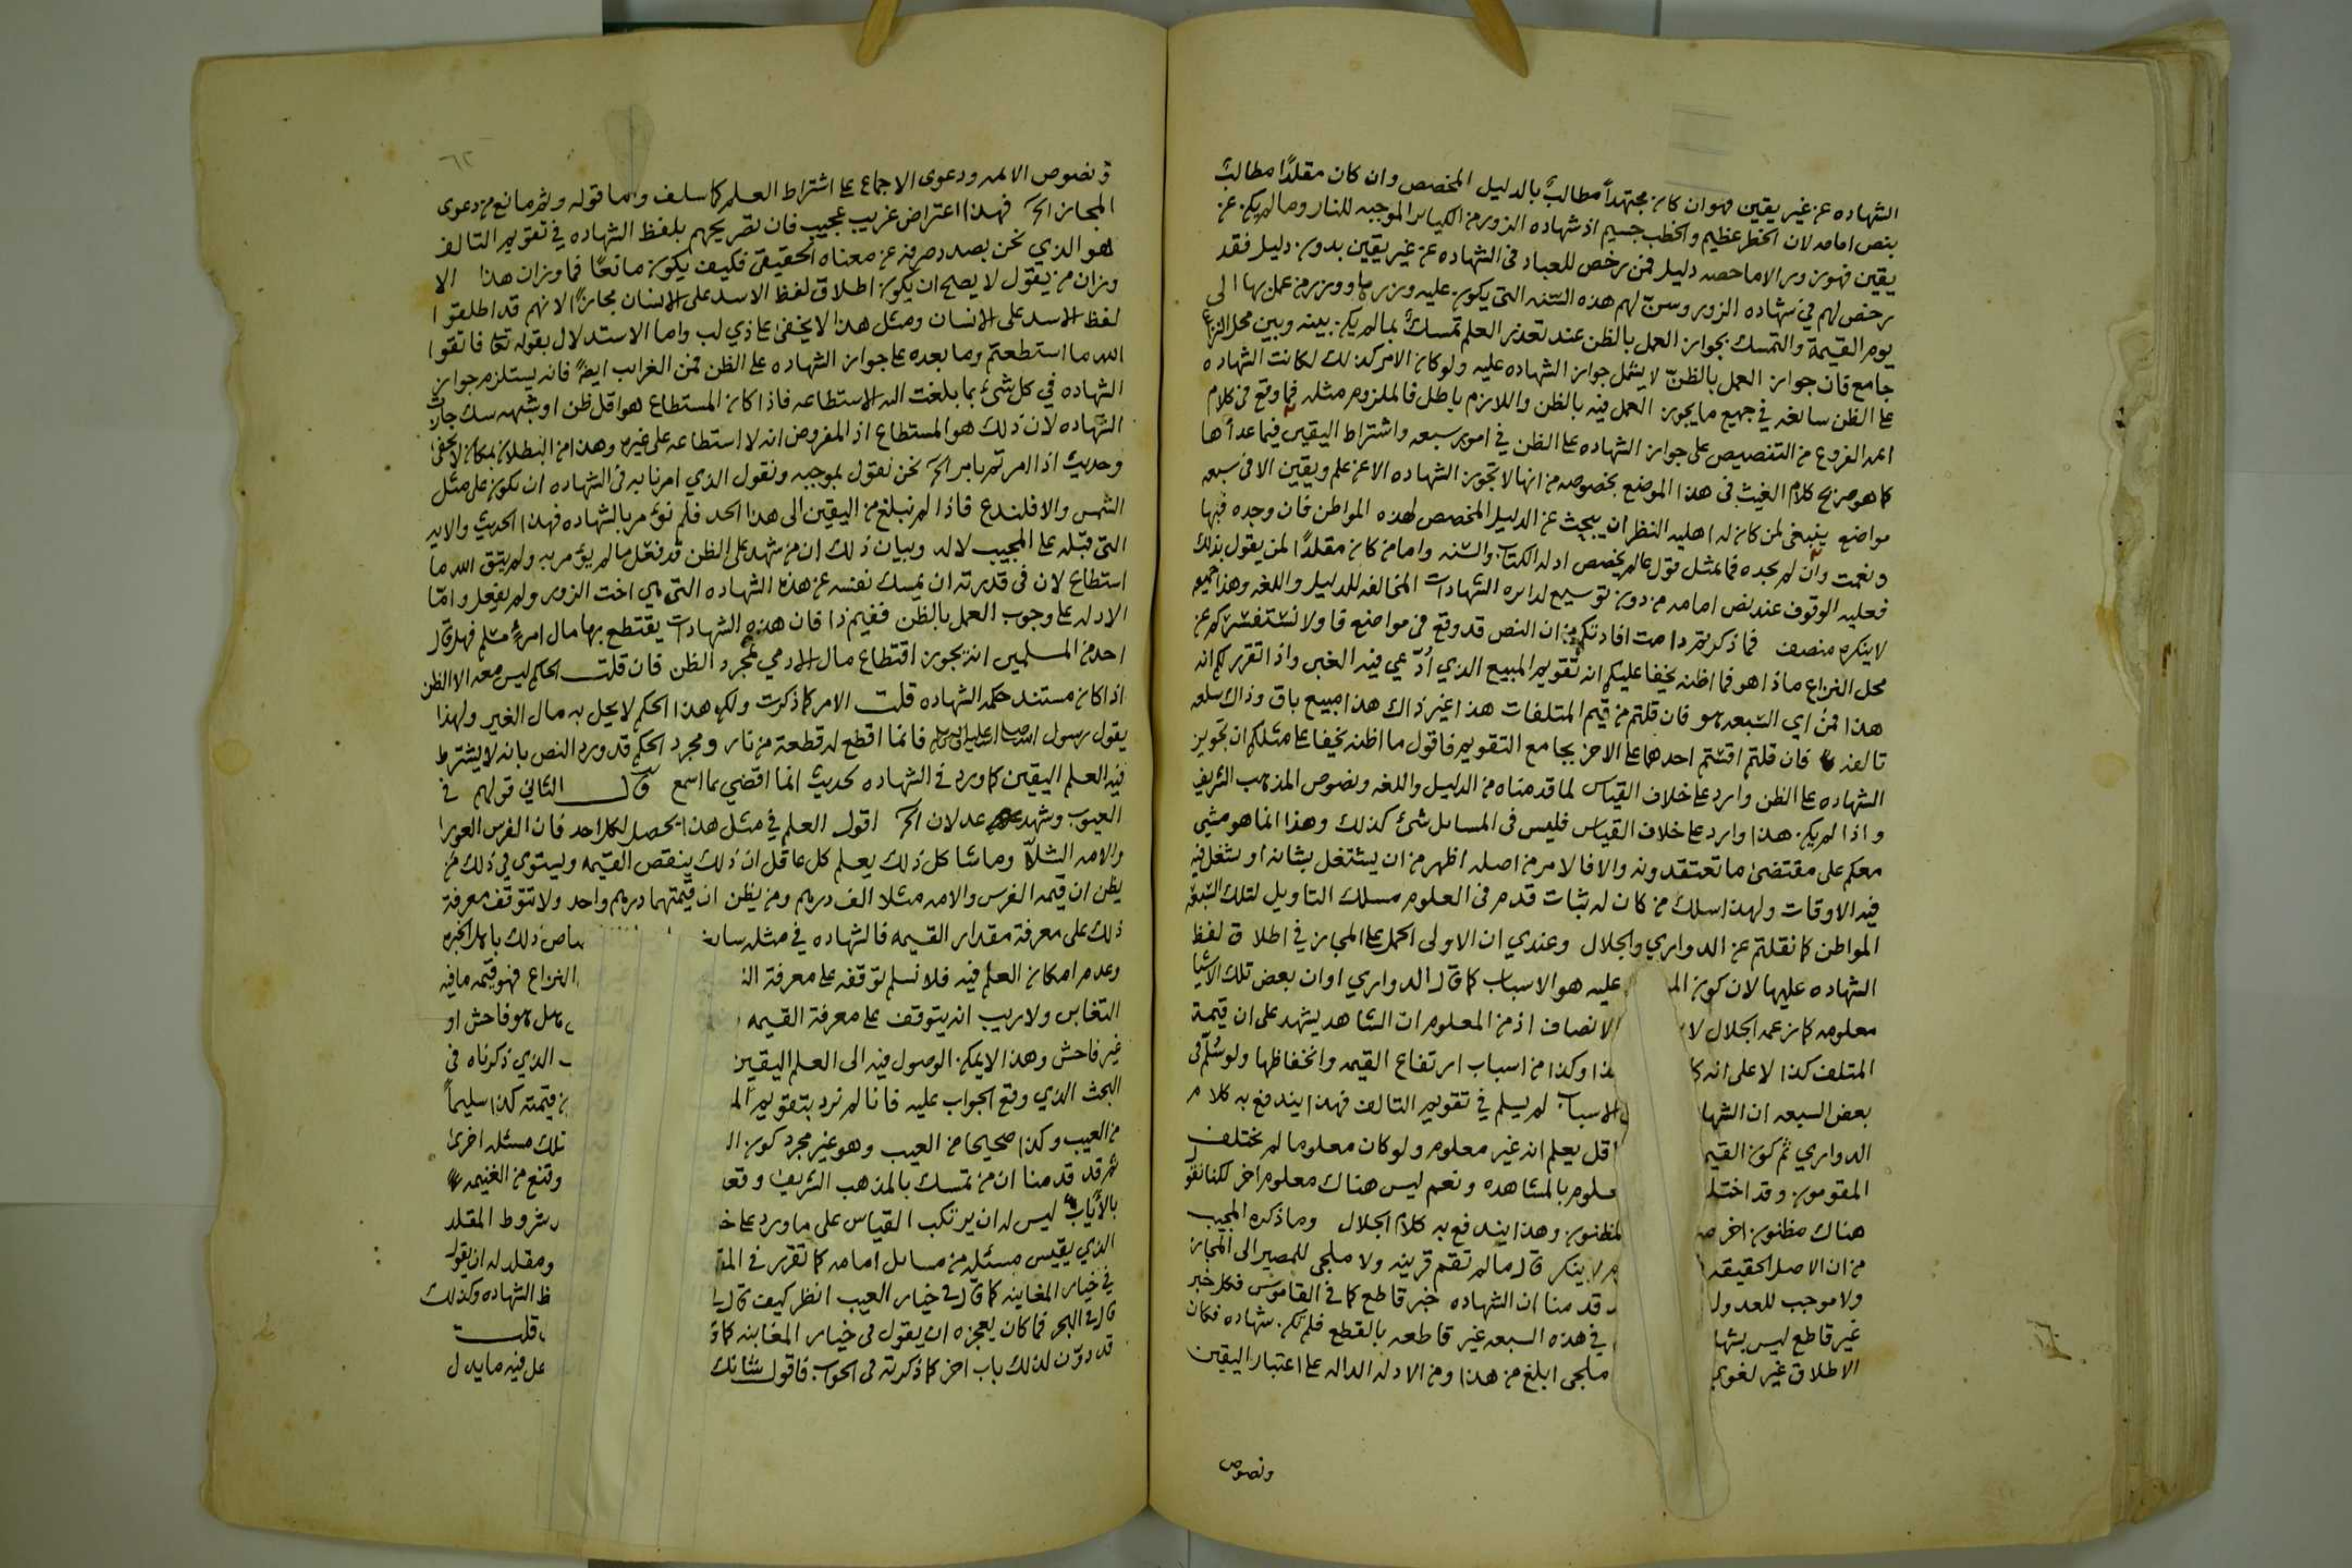 الشهاده عن غير يقين فهو ان كان مجتهداً مطالبٌ بالدليل المخصص وان كان مقلدًا مطالبٌ
بنص امامه لان الخطر عظيم والخطب جسيم اذ شهاده الزور من الكباير الموجبه للنار وما لم يكن عن
يقين فهو زور الا ما خصه دليل فمن رخص للعباد في الشهاده عن غير يقين بدون دليل فقد
رخص لهم في شهاده الزور وسنّ لهم هذه السّنه التي يكون عليه وزرها ووزر من عمل بها الى
يوم القيمة والتمسك بجواز العمل بالظن عند تعذر العلم تمسكٌ بما لم يكن بينه وبين محل النزاع
جامع فان جواز العمل بالظنّ لا يشمل جواز الشهاده عليه ولو كان الامر كذلك لكانت الشهاده
على الظن سائغه في جميع ما يجوز العمل فيه بالظن واللازم باطل فالملزوم مثله فما وقع في كلام
ايمه الفروع من التنصيص على جواز الشهاده على الظن في امور سبعه واشتراط اليقين فيما عداها
كما هو صريح كلام الغيث في هذا الموضع بخصوصه من انها لا تجوز الشهاده الا عن علم ويقين الا في سبعه
مواضع ينبغي لمن كان له اهليه النظر ان يبحث عن الدليل المخصص لهذه المواطن فان وجده فبها
ونعمت وان لم يجده فما بمثل قول عالم يخصص ادله الكتاب والسّنه واما من كان مقلدًا لمن يقول بذلك
فعليه الوقوف عند نص امامه من دون توسيع لدايره الشهادات المخالفه للدليل واللغه وهذا جميعه
لا ينكره منصف فما ذكرتم دامت افادتكم من ان النص قد وقع في مواضع فاولا نستفسركم عن
محل النزاع ماذا هو فما اظنه يخفا عليكم انه تقويم المبيع الذي ادّعي فيه الغبن واذا تقرر لكم انه
هذا فمن اي السّبعه هو فان قلتم من قيم المتلفات هذا غير ذاك هذا مبيع باق وذاك سلعه
تالفه فان قلتم اقستم احدهما على الاخر بجامع التقويم فاقول ما اظنه يخفا على مثلكم ان تجويز
الشهاده على الظن وارد على خلاف القياس لما قدمناه من الدليل واللغه ونصوص المذهب الشريف
واذا لم يكن هذا وارد على خلاف القياس فليس في المسايل شيء كذلك وهذا انما هو مشي
معكم على مقتضى ما تعتقدونه والا فالامر من اصله اظهر من ان يشتغل بشانه او يشغل فيه
فيه الاوقات ولهذا سلك من كان له ثبات قدم في العلوم مسلك التاويل لتلك السّبعه
المواطن كما نقلتم عن الدواري والجلال وعندي ان الاولى الحمل على المجاز في اطلاق لفظ
الشهاده عليها لان كون الم عليه هو الاسباب كما قال الدواري او ان بعض تلك الاشيا
معلومه كما زعمه الجلال لا الانصاف اذ من المعلوم ان الشاهد يشهد على ان قيمة
المتلف كذا لا على انه كا ذا وكذا من اسباب ارتفاع القيمه وانخفاظها ولو سُلّم في
بعض السبعه ان الشها الاسباب لم يسلم في تقويم التالف فهذا يندفع به كلام
الدواري ثم كون القيم اقل يعلم انه غير معلوم ولو كان معلوما لم يختلف
المقومون وقد اختلف ـعلوم بالمشاهده ونعم ليس هناك معلوم اخر لكنا نقول
هناك مظنون اخر لمظنون وهذا يندفع به كلام الجلال وما ذكره المجيب
من ان الاصل الحقيقه لا ينكر قال ما لم تقم قرينه ولا ملجي للمصير الى المجاز
ولا موجب للعدول قدمنا ان الشهاده خبر قاطع كما في القاموس فكل خبر
غير قاطع ليس بشها في هذه السبعه غير قاطعه بالقطع فلم تكن شهاده فكان
الاطلاق غير لغوي ملجى ابلغ من هذا ومن الادله الداله على اعتبار اليقين
ونصوص
٦٢
ونصوص الايمه ودعوى الاجماع على اشتراط العلم كما سلف واما قوله وثم مانع من دعوى
المجاز الخ فهذا اعتراض غريب عجيب فان تصريحهم بلفظ الشهاده في تقويم التالف
هو الذي نحن بصدد صرفه عن معناه الحقيقي فكيف يكون مانعًا فما وزان هذا الا
وزان من يقول لا يصح ان يكون اطلاق لفظ الاسد على الانسان مجازًا لانهم قد اطلقوا
لفظ الاسد على الانسان ومثل هذا لا يخفى على ذي لب واما الاستدلال بقوله تعالى فاتقوا
الله ما استطعتم وما بعده على جواز الشهاده على الظن فمن الغرايب ايضًا فانه يستلزم جواز
الشهاده في كل شيء بما بلغت اليه الاستطاعه فاذا كان المستطاع هو اقل ظن او شبهه شك جازت
الشهاده لان ذلك هو المستطاع اذ المفروض انه لا استطاعه على غيره وهذا من البطلان بمكان لا يخفى
وحديث اذا امرتم بامر الخ نحن نقول بموجبه ونقول الذي امرنا به في الشهاده ان تكون على مثل
الشمس والا فلندع فاذا لم نبلغ من اليقين الى هذا الحد فلم نؤمر بالشهاده فهذا الحديث والايه
التي قبله على المجيب لا له وبيان ذلك ان من شهد على الظن قد فعل ما لم يؤمر به ولم يتق الله ما
استطاع لان في قدرته ان يمسك نفسه عن هذه الشهاده التي هي اخت الزور ولم يفعل وامّا
الادله على وجوب العمل بالظن ففيم ذا فان هذه الشهادات يقتطع بها مال امرءٍ مسلم فهل قال
احد من المسلمين انه يجوز اقتطاع مال الادمي بمجرد الظن فان قلت الحاكم ليس معه الا الظن
اذا كان مستند حكمه الشهاده قلت الامر كما ذكرت ولكن هذا الحكم لا يحل به مال الغير ولهذا
يقول رسول الله صلى الله عليه واله وسلم فانما اقطع له قطعة من نار ومجرد الحكم قد ورد النص بانه لا يشترط
فيه العلم اليقين كما ورد في الشهاده كحديث انما اقضي بما اسمع قال الثاني قولهم في
العيوب وشهد عدلان الخ اقول العلم في مثل هذا يحصل لكل احد فان الفرس العورا
والامه الشلّا وما شاكل ذلك يعلم كل عاقل ان ذلك ينقص القيمه ويستوي في ذلك من
يظن ان قيمه الفرس والامه مثلا الف درهم ومن يظن ان قيمتهما درهم واحد ولا تتوقف معرفة
ذلك على معرفة مقدار القيمه فالشهاده في مثله ساىغ ـصاص ذلك باهل الخبره
وعدم امكان العلم فيه فلا نسلم توقفه على معرفة الـ النزاع فهو قيمه ما فيه
التغابن ولا ريب انه يتوقف على معرفة القيمه هل هو فاحش او
غير فاحش وهذا لا يمكن الوصول فيه الى العلم اليقين الذي ذكرناه في
البحث الذي وقع الجواب عليه فانا لم نرد بتقويم الم قيمته كذا سليماً
من العيب وكذا صحيحا من العيب وهو غير مجرد كون الـ تلك مسئله اخرى
ثم قد قدمنا ان من تمسك بالمذهب الشريف وقعـ وقنع من الغنيمه
بالأياب ليس له ان يرتكب القياس على ما ورد على خـ شروط المقلد
الذي يقيس مسئله من مسايل امامه كما تقرر في المقـ ومقلد له ان يقول
في خيار المغابنه كما قال في خيار العيب انظر كيف قال ظ الشهاده وكذلك
قال في البحر فما كان يعجزه ان يقول في خيار المغابنه كما قـ قلت
قد دوّن لذلك باب اخر كما ذكرته في الجواب فاقول شانك على فيه ما يدل